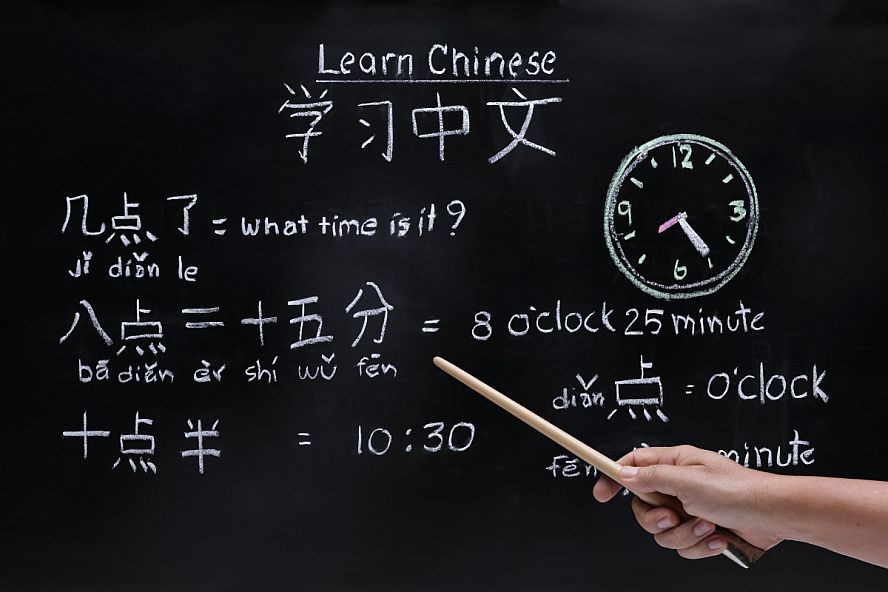 Learn Chinese
学习中文
几点了 = what time is it?
jǐ diǎn le
12
9 3
6
八点二十五分 = 8 o'clock 25 minute
bā diǎn èr shí wǔ fēn
diǎn 点 = o'clock
十点半 = 10:30
fēn minute